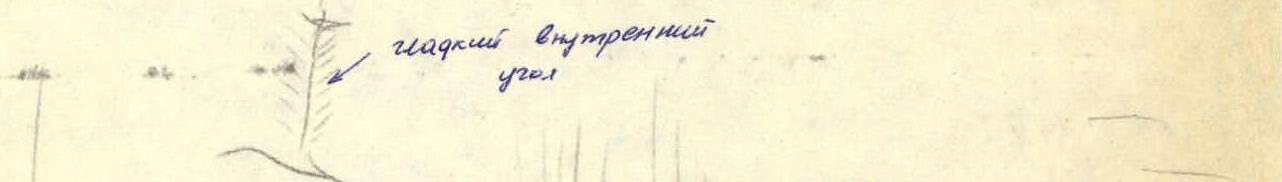 гладкий внутренний
угол